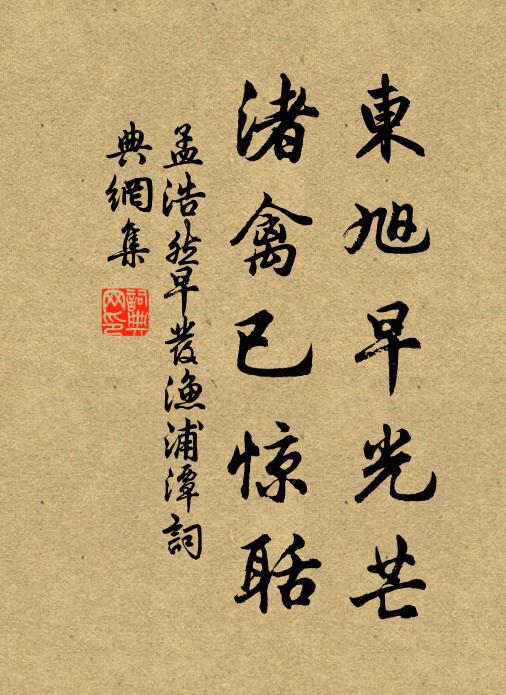 東旭早光芒
渚禽已惊聒
孟浩然早發漁浦潭詞
典網集
詞典网印